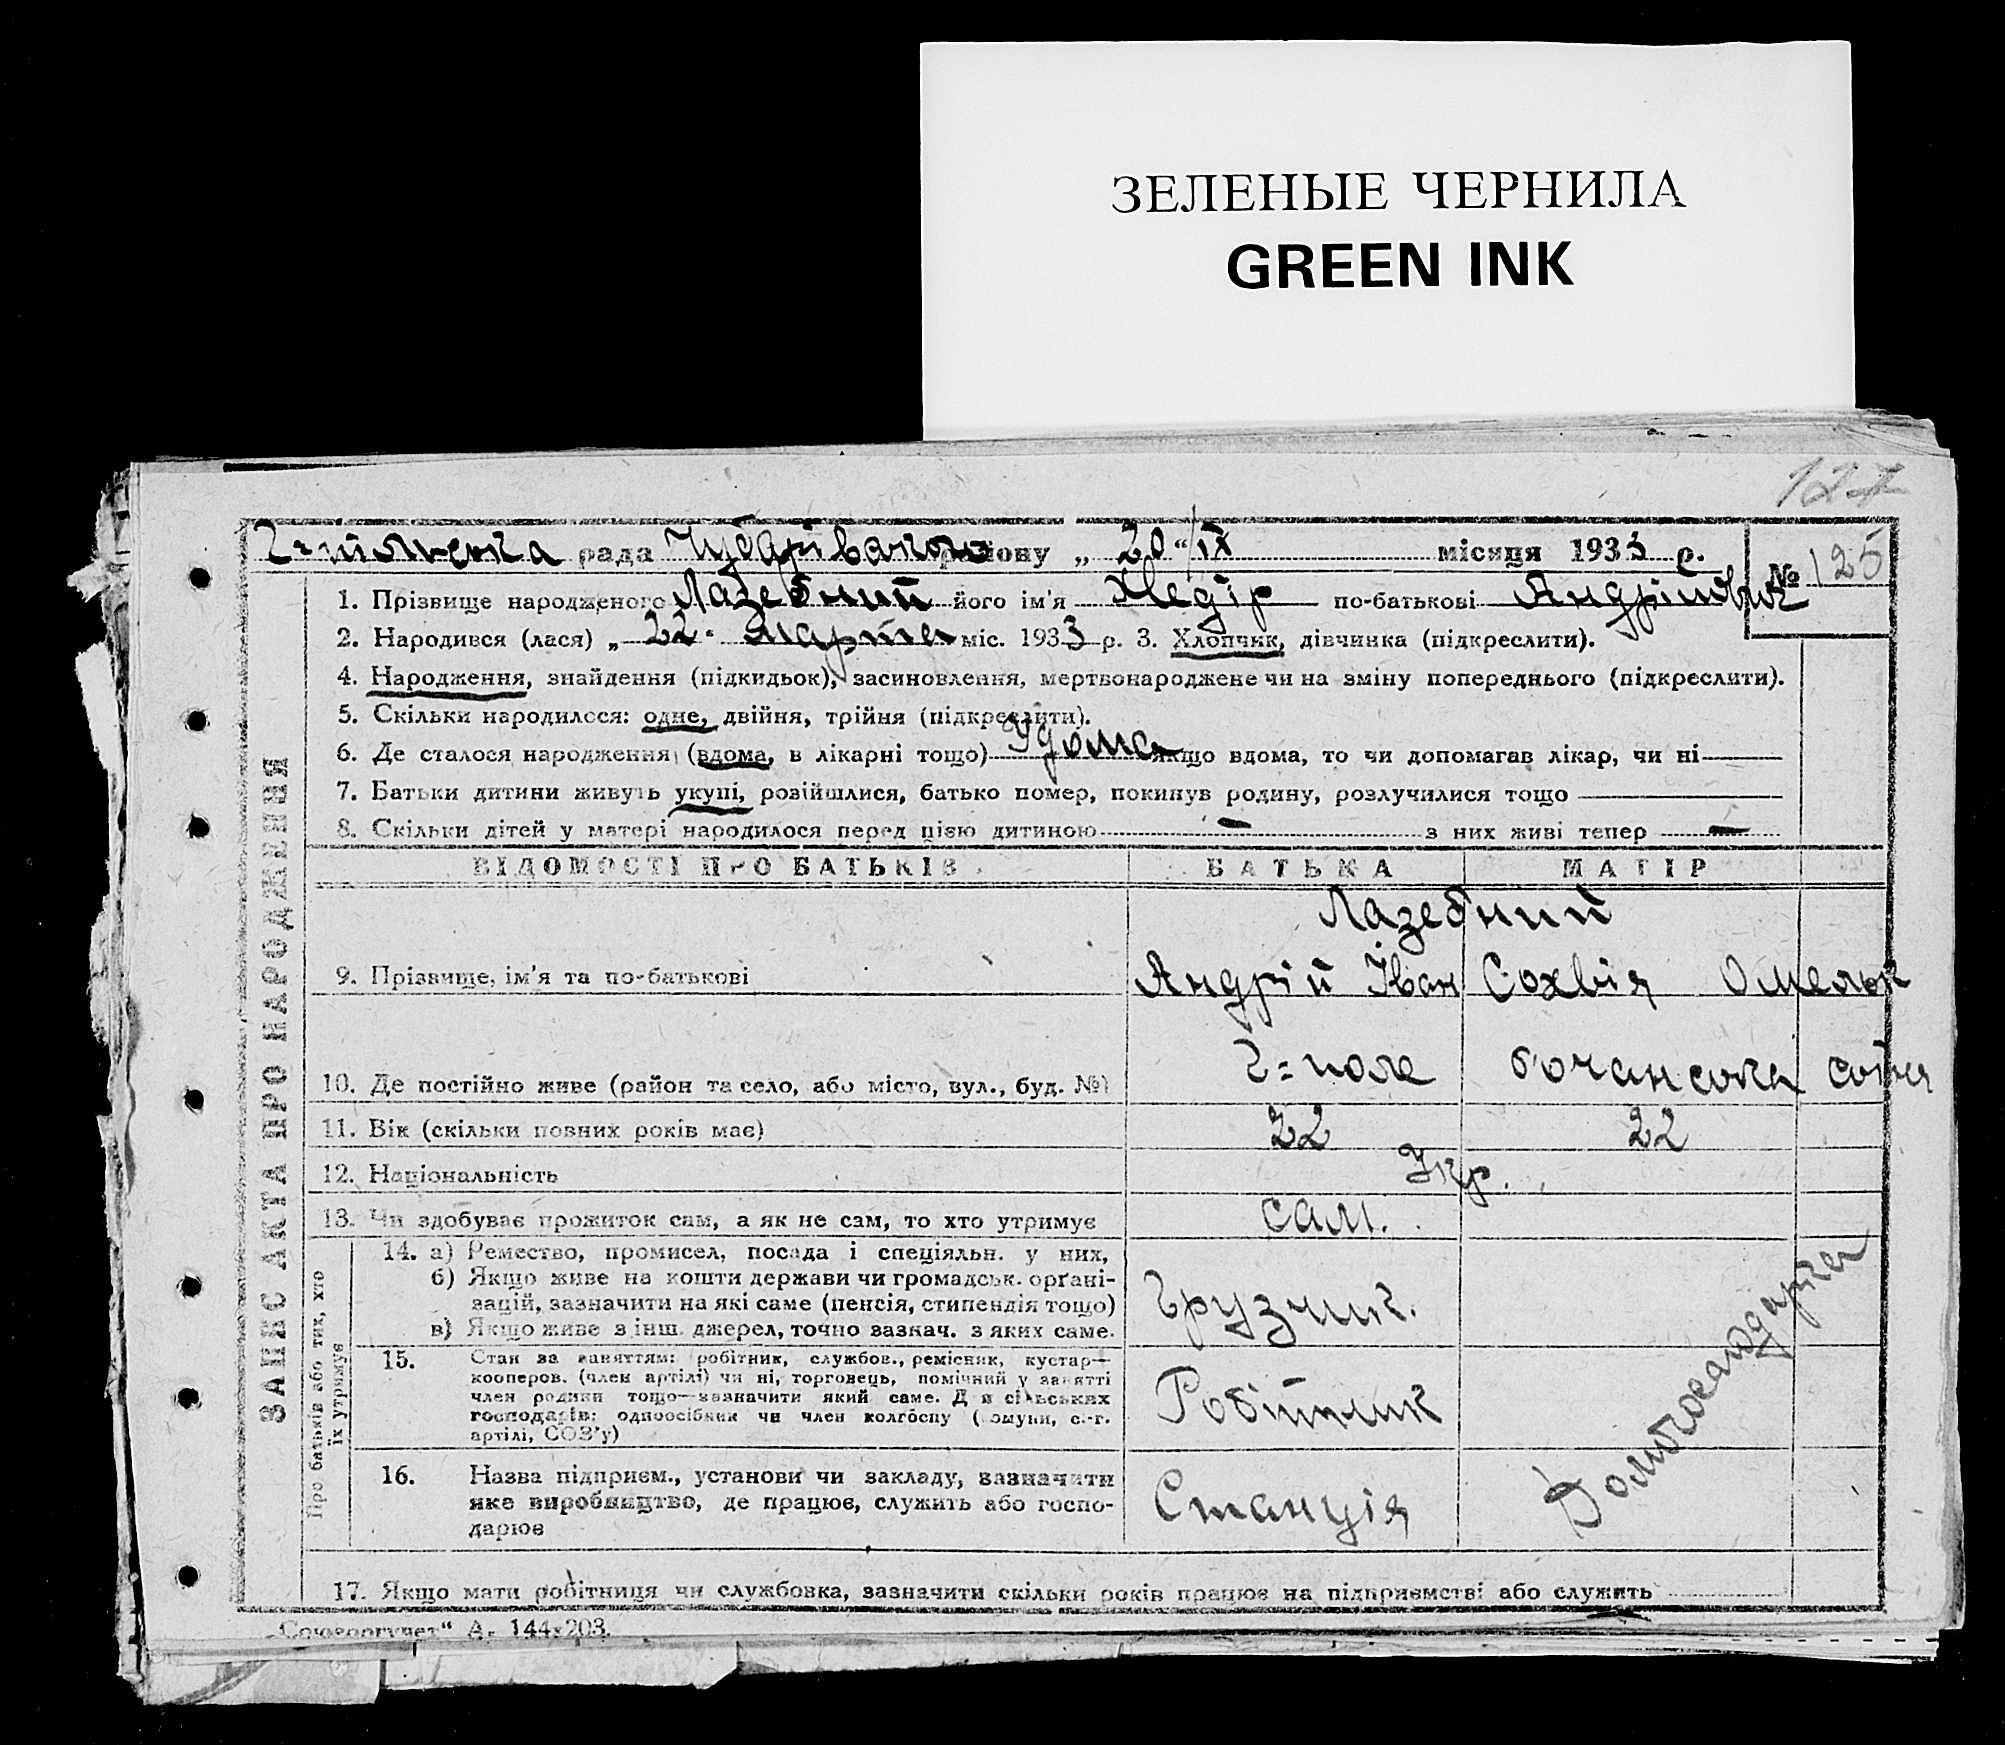 ЗЕЛЕНЫЕ ЧЕРНИЛА
GREEN INK
127
рада району „ 20 “ IX місяця 1933 р.
№ 125
1. Прізвище народженого Лазебний його ім'я Хведір по-батькові Андрійович
2. Народився (лася) „ 22. марта міс. 1933 р. 3. Хлопчик, дівчинка (підкреслити).
4. Народження, знайдення (підкидьок), засиновлення, мертвонароджене чи на зміну попереднього (підкреслити).
5. Скільки народилося: одне, двійня, трійня (підкреслити).
6. Де сталося народження (вдома, в лікарні тощо) Удома якщо вдома, то чи допомагав лікар, чи ні
7. Батьки дитини живуть укупі, розійшлися, батько помер, покинув родину, розлучилися тощо
8. Скільки дітей у матері народилося перед цією дитиною — з них живі тепер —
ВІДОМОСТІ ПРО БАТЬКІВ БАТЬКА МАТІР
Лазебний
9. Прізвище, ім'я та по-батькові Андрій Іван Сохвія Омельк
10. Де постійно живе (район та село, або місто, вул., буд. №) Г=поле сотня
11. Вік (скільки повних років має) 22 22
12. Національність Укр.
13. Чи здобуває прожиток сам, а як не сам, то хто утримує сам.
14. а) Ремество, промисел, посада і спеціяльн. у них,
б) Якщо живе на кошти держави чи громадськ. орґані-
зацій, зазначити на які саме (пенсія, стипендія тощо)
в) Якщо живе з інш. джерел, точно зазнач. з яких саме.
Грузчик.
15. Стан за заняттям: робітник, службов., ремісник, кустар—
кооперов. (член артілі) чи ні, торговець, помічний у занятті
член родини тощо—зазначити який саме. Для сільських
господарів: одноосібник чи член колгоспу (комуни, с.-г.
артілі, СОЗ'у)
Робітник
16. Назва підприєм., установи чи закладу, зазначити
яке виробництво, де працює, служить або госпо-
дарює
Станція
Домогосподарка
17. Якщо мати робітниця чи службовка, зазначити скільки років працює на підприємстві або служить
ЗАПИС АКТА ПРО НАРОДЖЕННЯ
Про батьків або тих, хто
їх утримує
А. 144×203.